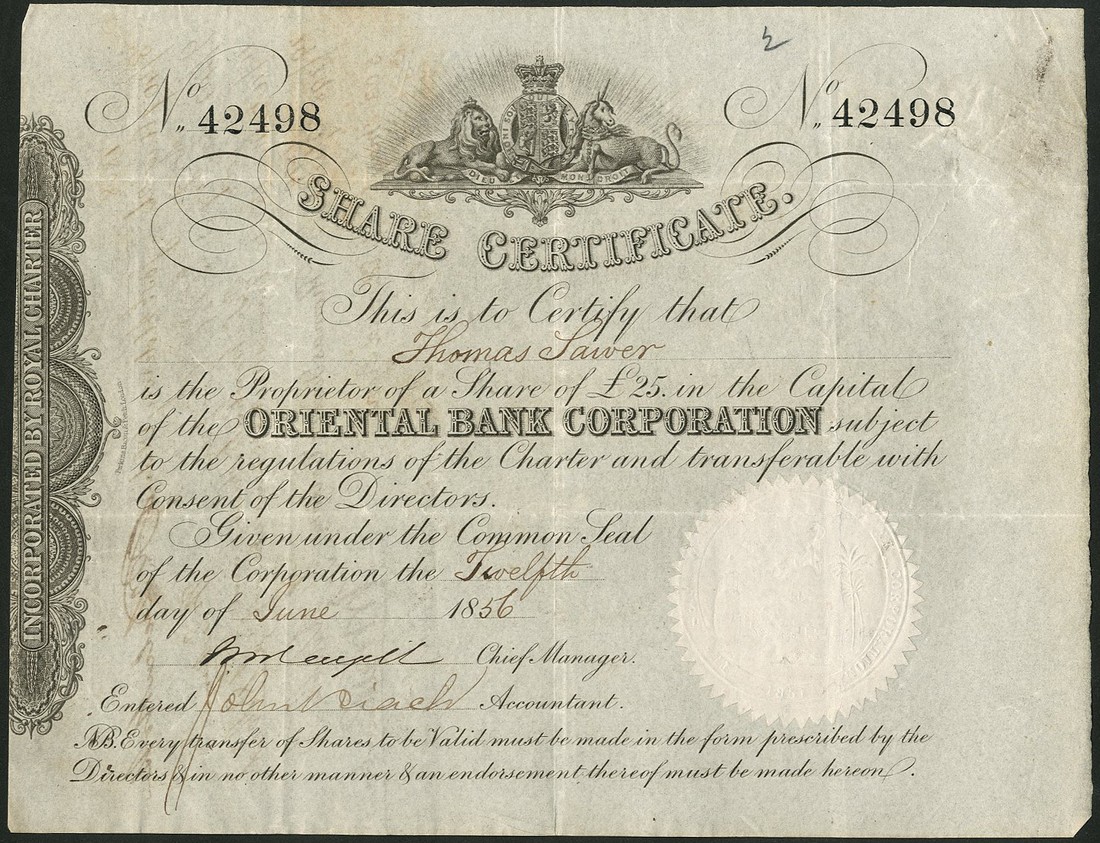 2
No 42498
No 42498
HONI SOIT
DIEU ET MON DROIT
SHARE CERTIFICATE.
This is to Certify that
Thomas Sawer
is the Proprietor of a Share of £25. in the Capital
of the ORIENTAL BANK CORPORATION subject
to the regulations of the Charter and transferable with
Consent of the Directors.
Given under the Common Seal
of the Corporation the Twelfth
day of June 1856
Chief Manager.
Entered John Accountant.
NB. Every transfer of Shares to be Valid must be made in the form prescribed by the
Directors & in no other manner & an endorsement thereof must be made hereon.
INCORPORATED BY ROYAL CHARTER